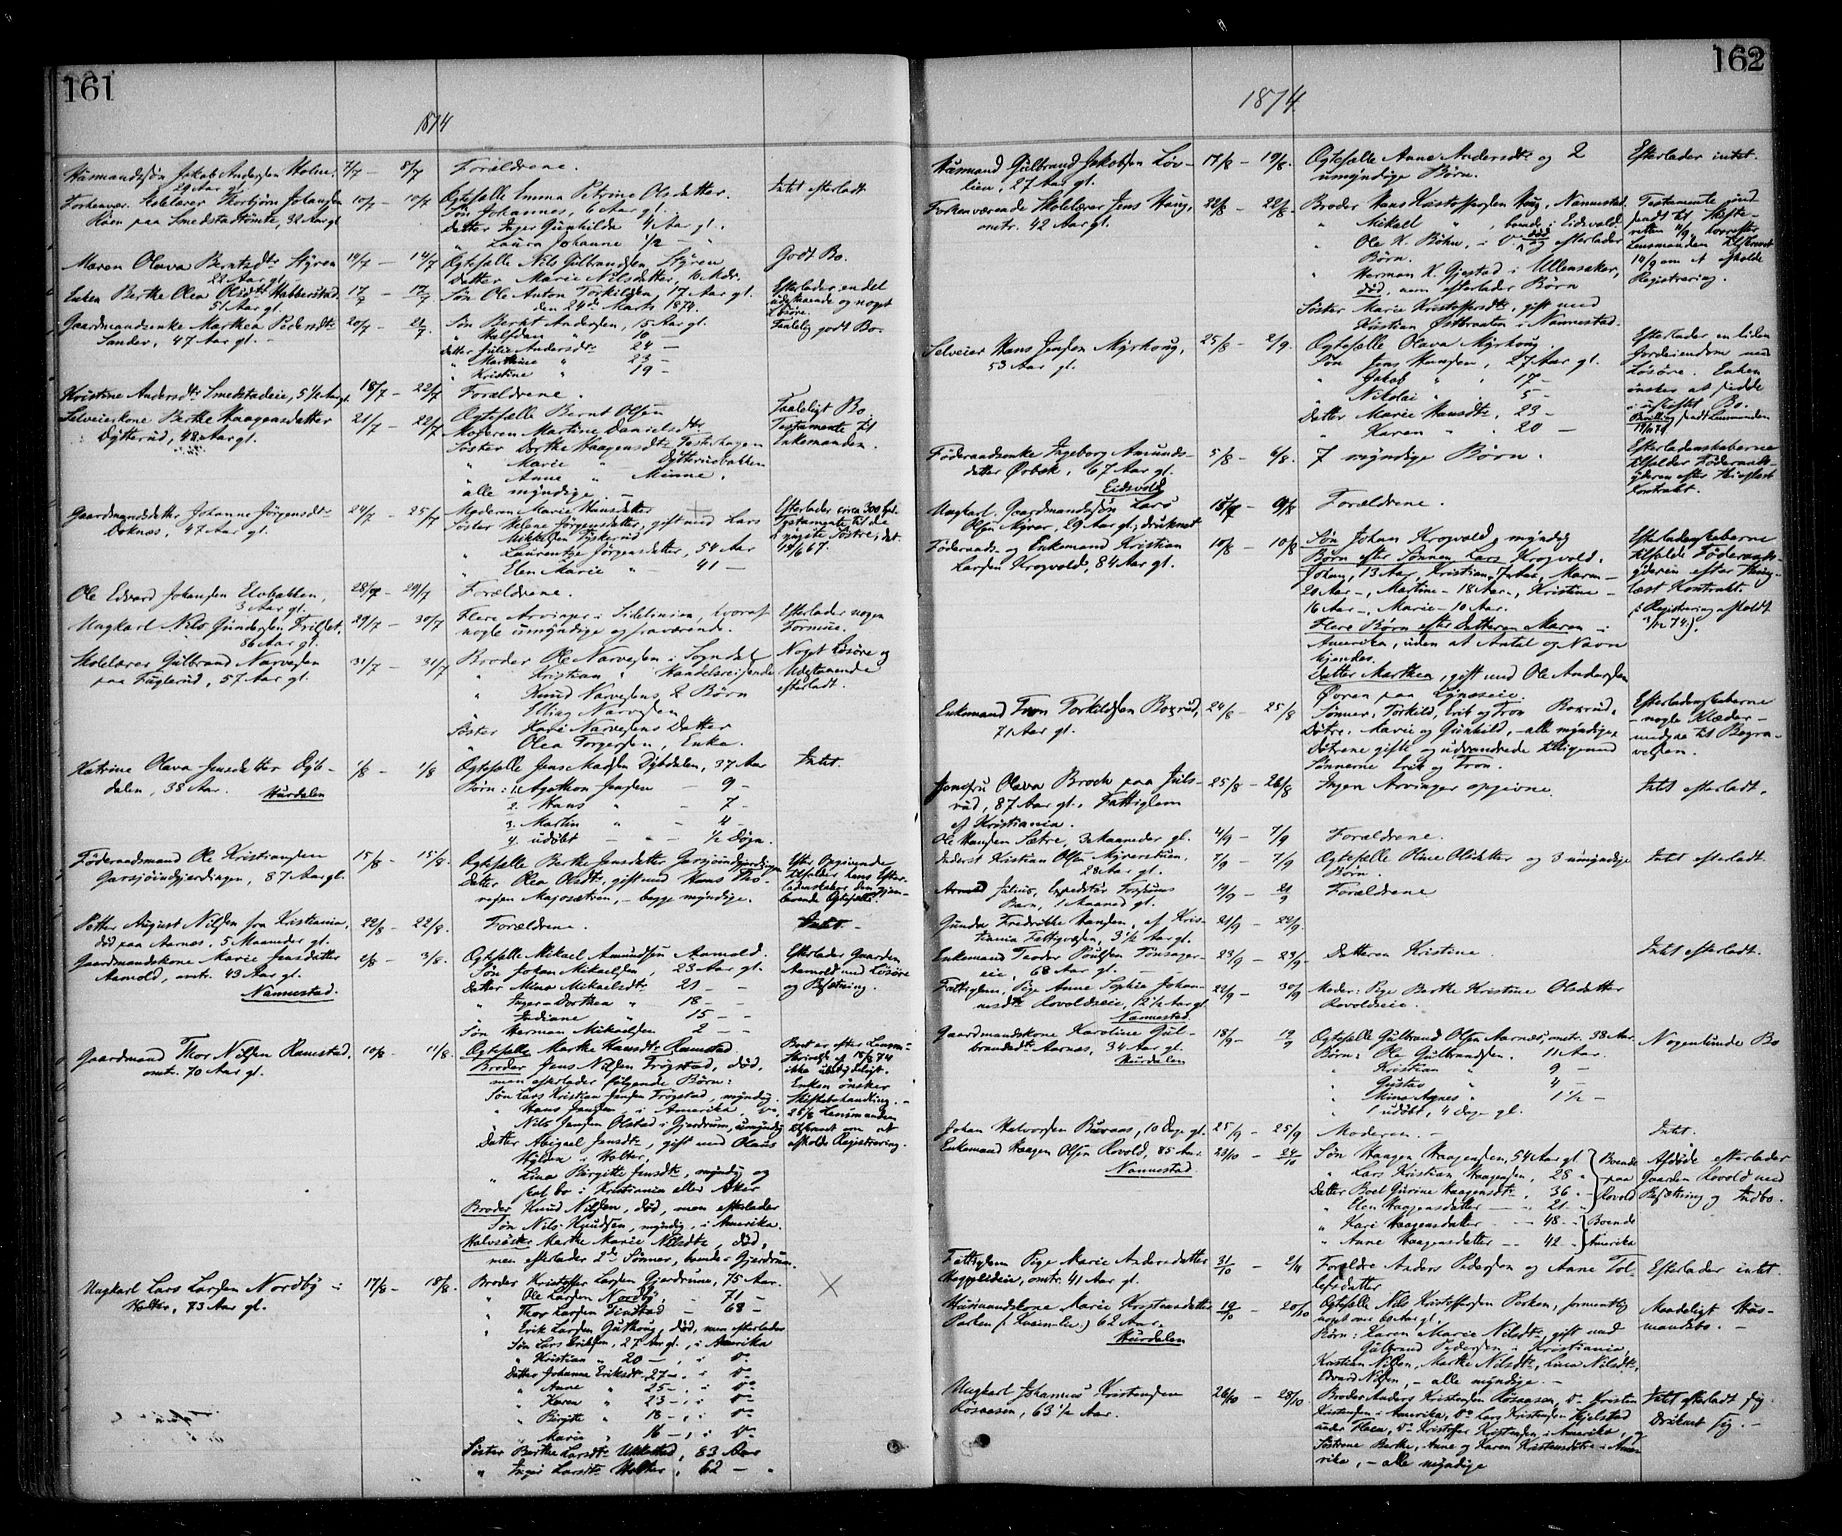 161
1874
Husmandssøn Jakob Andersen Holm, 7/7 — 8/7 Forældrene.
29 Aar gl.
Forhenvær. Skolelærer Thorbjørn Johansen 10/7 — 10/7 Ægtefælle Emma Petrine Olsdatter. Intet efterladt.
paa Smedstadtomte, 32 Aar gl. Søn Johannes, 6 Aar gl.
Datter Inger Gunhilde 4 Aar gl.
" Laura Johanne 1/2 — "
Maren Olava Berntsdtr Styren 14/7 — 14/7 Ægtefælle Nils Gulbrandsen Styren Godt Bo.
22 Aar gl. Datter Marie Nilsdatter, 6 Mdr.
Enken Berthe Olea Olsdtr Habberstad 17/7 — 17/7 Søn Ole Anton Torkildsen 17 Aar gl. Efterlader en del
51 Aar gl. den 24de Marts 1874. udestaaende og noget Løsøre.
Gaardmandsenke Marthea Pedersdtr 20/7 — 22/7. Søn Bernt Andersen, 15 Aar gl. Temmelig godt Bo.
Sander, 47 Aar gl. — " Halfdan " 10 —
Datter Julie Andersdtr 24 —
" Marthine " 23 —
" Kristine " 19 —
Kristine Andersdtr Smedstadeie, 5 1/2 Aar gl. 18/7 — 22/7 Forældrene.
Selveierkone Berthe Haagensdatter 21/7 — 22/7 Ægtefælle Bernt Olsen Taaleligt Bo.
Dytterud, 48 Aar gl. Moderen Martine Danielsdtr Testamente til
Søster Dorthe Haagensdtr Enkemanden.
" Marie " Dytterudbakken
" Anne " Minne.
alle myndige.
Gaardmandsdatter Johanne Jørgensdtr 24/7 — 25/7 Moderen Marie Hansdatter Efterlader circa 300 Spd.
Doknæs, 47 Aar gl. Søster Helene Jørgensdatter, gift med Lars Testamente til de
Mikkelsen Tyskerud 2 yngste Søstre; det.
" Laurentze Jørgensdatter, 54 Aar 19/6 67.
" Elen Marie " 41 —
Ole Edvard Johansen Elvbakken, 28/7 — 29/7 Forældrene.
3 Aar gl.
Ungkarl Nils Gundersen Trillet, 29/7 — 30/7 Flere Arvinger i Sidelinien, hvoraf Efterlader nogen
66 Aar gl. nogle umyndige og fraværende. Formue.
Skolelærer Gulbrand Narvesen 31/7 — 31/7 Broder Ole Narvesen i Sogndal Noget Løsøre og
paa Fuglerud, 57 Aar gl. " Kristian " Handelsreisende Udestaaende
" Knud Narvesens 2 Børn efterladt.
" Elling Narvesen
Søster Kari Narvesens Datter
" Olea Torgersen, Enke.
Katrine Olava Jensdatter Dyb- 1/8 — 1/8 Ægtefælle Jens Madsen Dybdalen, 37 Aar Intet.
dalen, 38 Aar. Hurdalen Børn: 1. Agathon Jensen — 9 —
2. Hans " — 7 —
3. Martin " — 4 —
4. udøbt — " — 1/2 Døgn.
Føderaadsmand Ole Kristiansen 15/8 — 15/8. Ægtefælle Berthe Jensdatter Garsjøindgjerdingen Efter Opgivende
Garsjøindgjerdingen, 87 Aar gl. Datter Olea Olsdtr gift med Hans Tho- tilfalder hans Efter-
resen Majorsætren, — begge myndige. ladenskaber den gjen-
levende Ægtefælle.
Petter August Nilsen fra Kristiania, 22/8 — 22/8. Forældrene. Intet.
død paa Aarnes, 5 Maaneder gl.
Gaardmandskone Marie Jensdatter 2/8 — 3/8. Ægtefælle Mikael Amundsen Aamold. Efterlader Gaarden
Aamold, omtr. 43 Aar gl. Søn Johan Mikaelsen, 23 Aar gl. Aamold med Løsøre
Nannestad. Datter Mina Mikaelsdtr 21 — — og Besætning.
" Inger Dorthea " 18 — —
" Indiane " 15 — —
Søn Herman Mikaelsen 2 — —
Gaardmand Thor Nilsen Ramstad, 10/8 — 11/8. Ægtefælle Marthe Hansdtr Ramstad. Boet er efter Lensm.
omtr. 70 Aar gl. Broder Jens Nilsen Frøgstad, død, Skrivelse af 18/8 74
men efterlader følgende Børn: ikke ubetydeligt.
Søn Lars Kristian Jensen Frøgstad, myndig. Enken ønsker
" Hans Jensen i Amerika, do, Skiftebehandling. —
" Nils Jensen Olstad i Gjerdrum, umyndig 25/8 Lensmanden
Datter Abigael Jensdtr, gift med Olaus tilskrevet om at
i Holter, afholde Registrering.
" Lina Birgitte Jensdtr, myndig og
skal bo i Kristiania eller Aker
Broder Knud Nilsen, død, men efterlader
Søn Nils Knudsen, myndig, i Amerika.
Halvsøster Marthe Marie Nilsdtr, død,
men efterlader 2de Sønner, boende i Gjerdrum.
Ungkarl Lars Larsen Nordby i 17/8 — 18/8. Broder Kristoffer Larsen Gjerdrum, 75 Aar.
Holter, 73 Aar gl. " Ole Larsen Nordby, — 71 —
" Thor Larsen — 68 —
" Erik Larsen Guthoug, død, men efterlader
Søn Lars Eriksen, 27 Aar gl., i Amerika
" Kristian " 20 —, i do
Datter Johanne Eriksdtr 27 —, i do
" Anne " 25 —, i do
" Karen " 23 —, i do
" Birgitte " 18 —, i do
" Marie " 16 —, i do
Søster Berthe Larsdtr, 83 Aar
" Inger Larsdtr Holter, 62 — "
162
1874
Husmand Gulbrand Jakobsen Løv- 17/8 — 19/8. Ægtefælle Anne Andersdtr og 2 Efterlader intet.
lien, 27 Aar gl. umyndige Børn.
Forhenværende Skolelærer Jens Haug, 22/8 — 22/8. Broder Hans Kristoffersen Haug, Nannestad. Testamente ind-
omtr. 42 Aar gl. " Mikael " , boende i Eidsvold. sendt til Skifte-
" Ole K. Bøhn, i do, død og efterlader retten 11/9, hvorefter
Børn. Lensmanden tilskrevet
" Herman K. Gjestad i Ullensaker, 14/9 om at afholde
død, men efterlader Børn Registrering.
Søster Marie Kristoffersdtr, gift med
Kristian Østbraaten i Nannestad.
Selveier Hans Jensen Myrhoug, 25/8 — 2/9. Ægtefælle Olava Myrhoug. Efterlader en liden
53 Aar gl. Søn Jens Hansen, 27 Aar gl. Jordeiendom med
" Jakob " , 17 — Løsøre. Enken
" Nikolai " , 5 — ønsker at sidde
Datter Marie Hansdtr, 23 — i uskiftet Bo.
" Karen " , 20 —
Føderaadsenke Ingeborg Amunds- 5/8 — 6/8. 7 myndige Børn. Efterladenskaberne
datter Ørbæk, 67 Aar gl. tilfalder Føderaads-
Eidsvold yderen efter thinglæst
Kontrakt.
Ungkarl, Gaardmandssøn Lars — 9/8 Forældrene.
Olsen Myrer, 29 Aar gl; druknet
Føderaads- og Enkemand Kristian 10/8 — 10/8 Søn Johan Krogvold, myndig Efterladenskaberne
Larsen Krogvold, 84 Aar gl. Børn efter Sønnen Lars Krogvold. tilfalde Føderaads-
Johan, 13 Aar, Kristian 7 Aar, Maren — yderen efter thing-
20 Aar —, Martine — 18 Aar —, Kristine — læst Kontrakt.
16 Aar —, Marie — 10 Aar. (: Registrering afholdt
Flere Børn efter Datteren Maren i 3/12 74.)
Amerika, uden at Antal og Navn
kjendes.
Datter Marthea, gift med Ole Andersen
Øvren paa Lynæseie.
Enkemand Tron Torkildsen Boxrud, 24/8 — 25/8 Sønner: Torkild, Erik og Tron Boxrud, Efterladenskaberne
71 Aar gl. Døtre: Marie og Gunhild, — alle myndige, — nogle Klæder —
Døtrene gifte og udvandrede tilligemed medgaa til Begra-
Sønnerne Erik og Tron. velsen.
Jomfru Olava Broch paa Juls- 25/8 — 26/8 Ingen Arvinger opgivne. Intet efterladt.
rud, 87 Aar gl. Fattiglem
af Kristiania.
Ole Hansen Sætre, 3 Maaneder gl. 4/9 — 7/9 Forældrene.
Inderst Kristian Olsen Myrerstuen, 7/9 — 7/9 Ægtefælle Oline Olsdatter og 3 umyndige Intet efterladt.
28 Aar gl. Børn.
Arnold Julius, Expeditør 19/9 — 21/9 Forældrene
Barn, 1 Maaned gl.
Gunda Fredrikke Hansen, af Kris- 21/9 — 22/9.
tiania Fattigvæsen, 3 1/2 Aar gl.
Enkemand Teodor Poulsen Tønsager- 23/9 — 23/9. Datteren Kristine. Intet efterladt.
eie, 68 Aar gl. —
Fattiglem, Pige Anne Sophie Johan- 22/9 — 30/9 Moder: Pige Berthe Kristine Olsdatter
nesdtr Rovoldseie, 12 1/2 Aar gl. Rovoldseie.
Nannestad
Gaardmandskone Karoline Gul- 18/9 — 19/9 Ægtefælle Gulbrand Olsen Aarnes, omtr. 38 Aar. Nogenlunde Bo
brandsdtr Aarnes, 34 Aar gl. Børn: Ole Gulbrandsen, 11 Aar.
Hurdalen " Kristian " 9 —
" Gustav " 4 —
" Mina Agnes " 1 1/2 —
1 udøbt, 4 Dage gl.
Johan Halvorsen Buraas, 10 Dage gl. 25/9 — 25/9 Moderen. — Intet.
Enkemand Haagen Olsen Rovold, 85 Aar. 23/10 — 24/10 Søn Haagen Haagensen, 54 Aar gl. Boende Afdøde efterlader
Nannestad. " Lars Kristian Haagensen, 28 " paa Gaarden Rovold med
Datter Boel Gurine Haagensdtr, 36 " Rovold Besætning og Indbo.
" Elen Haagensdatter — 21 "
" Kari Haagensdatter — 48 " Boende
" Anne Haagensdatter — 42 " Amerika
Fattiglem Pige Marie Andersdatter 31/10 — 2/11 Forældre Anders Pedersen og Anne Tol- Efterlader intet.
omtr. 41 Aar gl. lefsdatter
Husmandskone Marie Kristensdatter 19/10 — 20/10 Ægtefælle Nils Kristoffersen Porken, formentlig Maadeligt Hus-
Porken 62 Aar. noget over 60 Aar gl. mandsbo. —
Hurdalen Børn: Karen Marie Nilsdtr, gift med
Gulbrand Pedersen i Kristiania,
Kristian Nilsen, Marthe Nilsdtr, Lina Nilsdtr,
Evard Nilsen, — alle myndige. —
Ungkarl Johannes Kristensen 26/10 — 28/10 Broder Anders Kristensen Røsaasen, do Kristen Intet efterladt sig.
Røsaasen, 63 1/2 Aar. Kristensen i Amerika, do Lars Kristensen Hjelstad Druknet sig. —
under Floen, do Kristoffer Kristensen i Amerika, og
Søstrene Berthe, Anne og Karen Kristensdøtre i Ame-
rika, — alle myndige